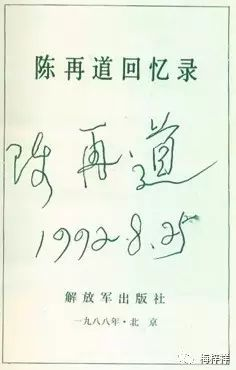 陈再道回忆录
陈再道
1992.8.25
解放军出版社
一九八八年·北京
梅梓祥